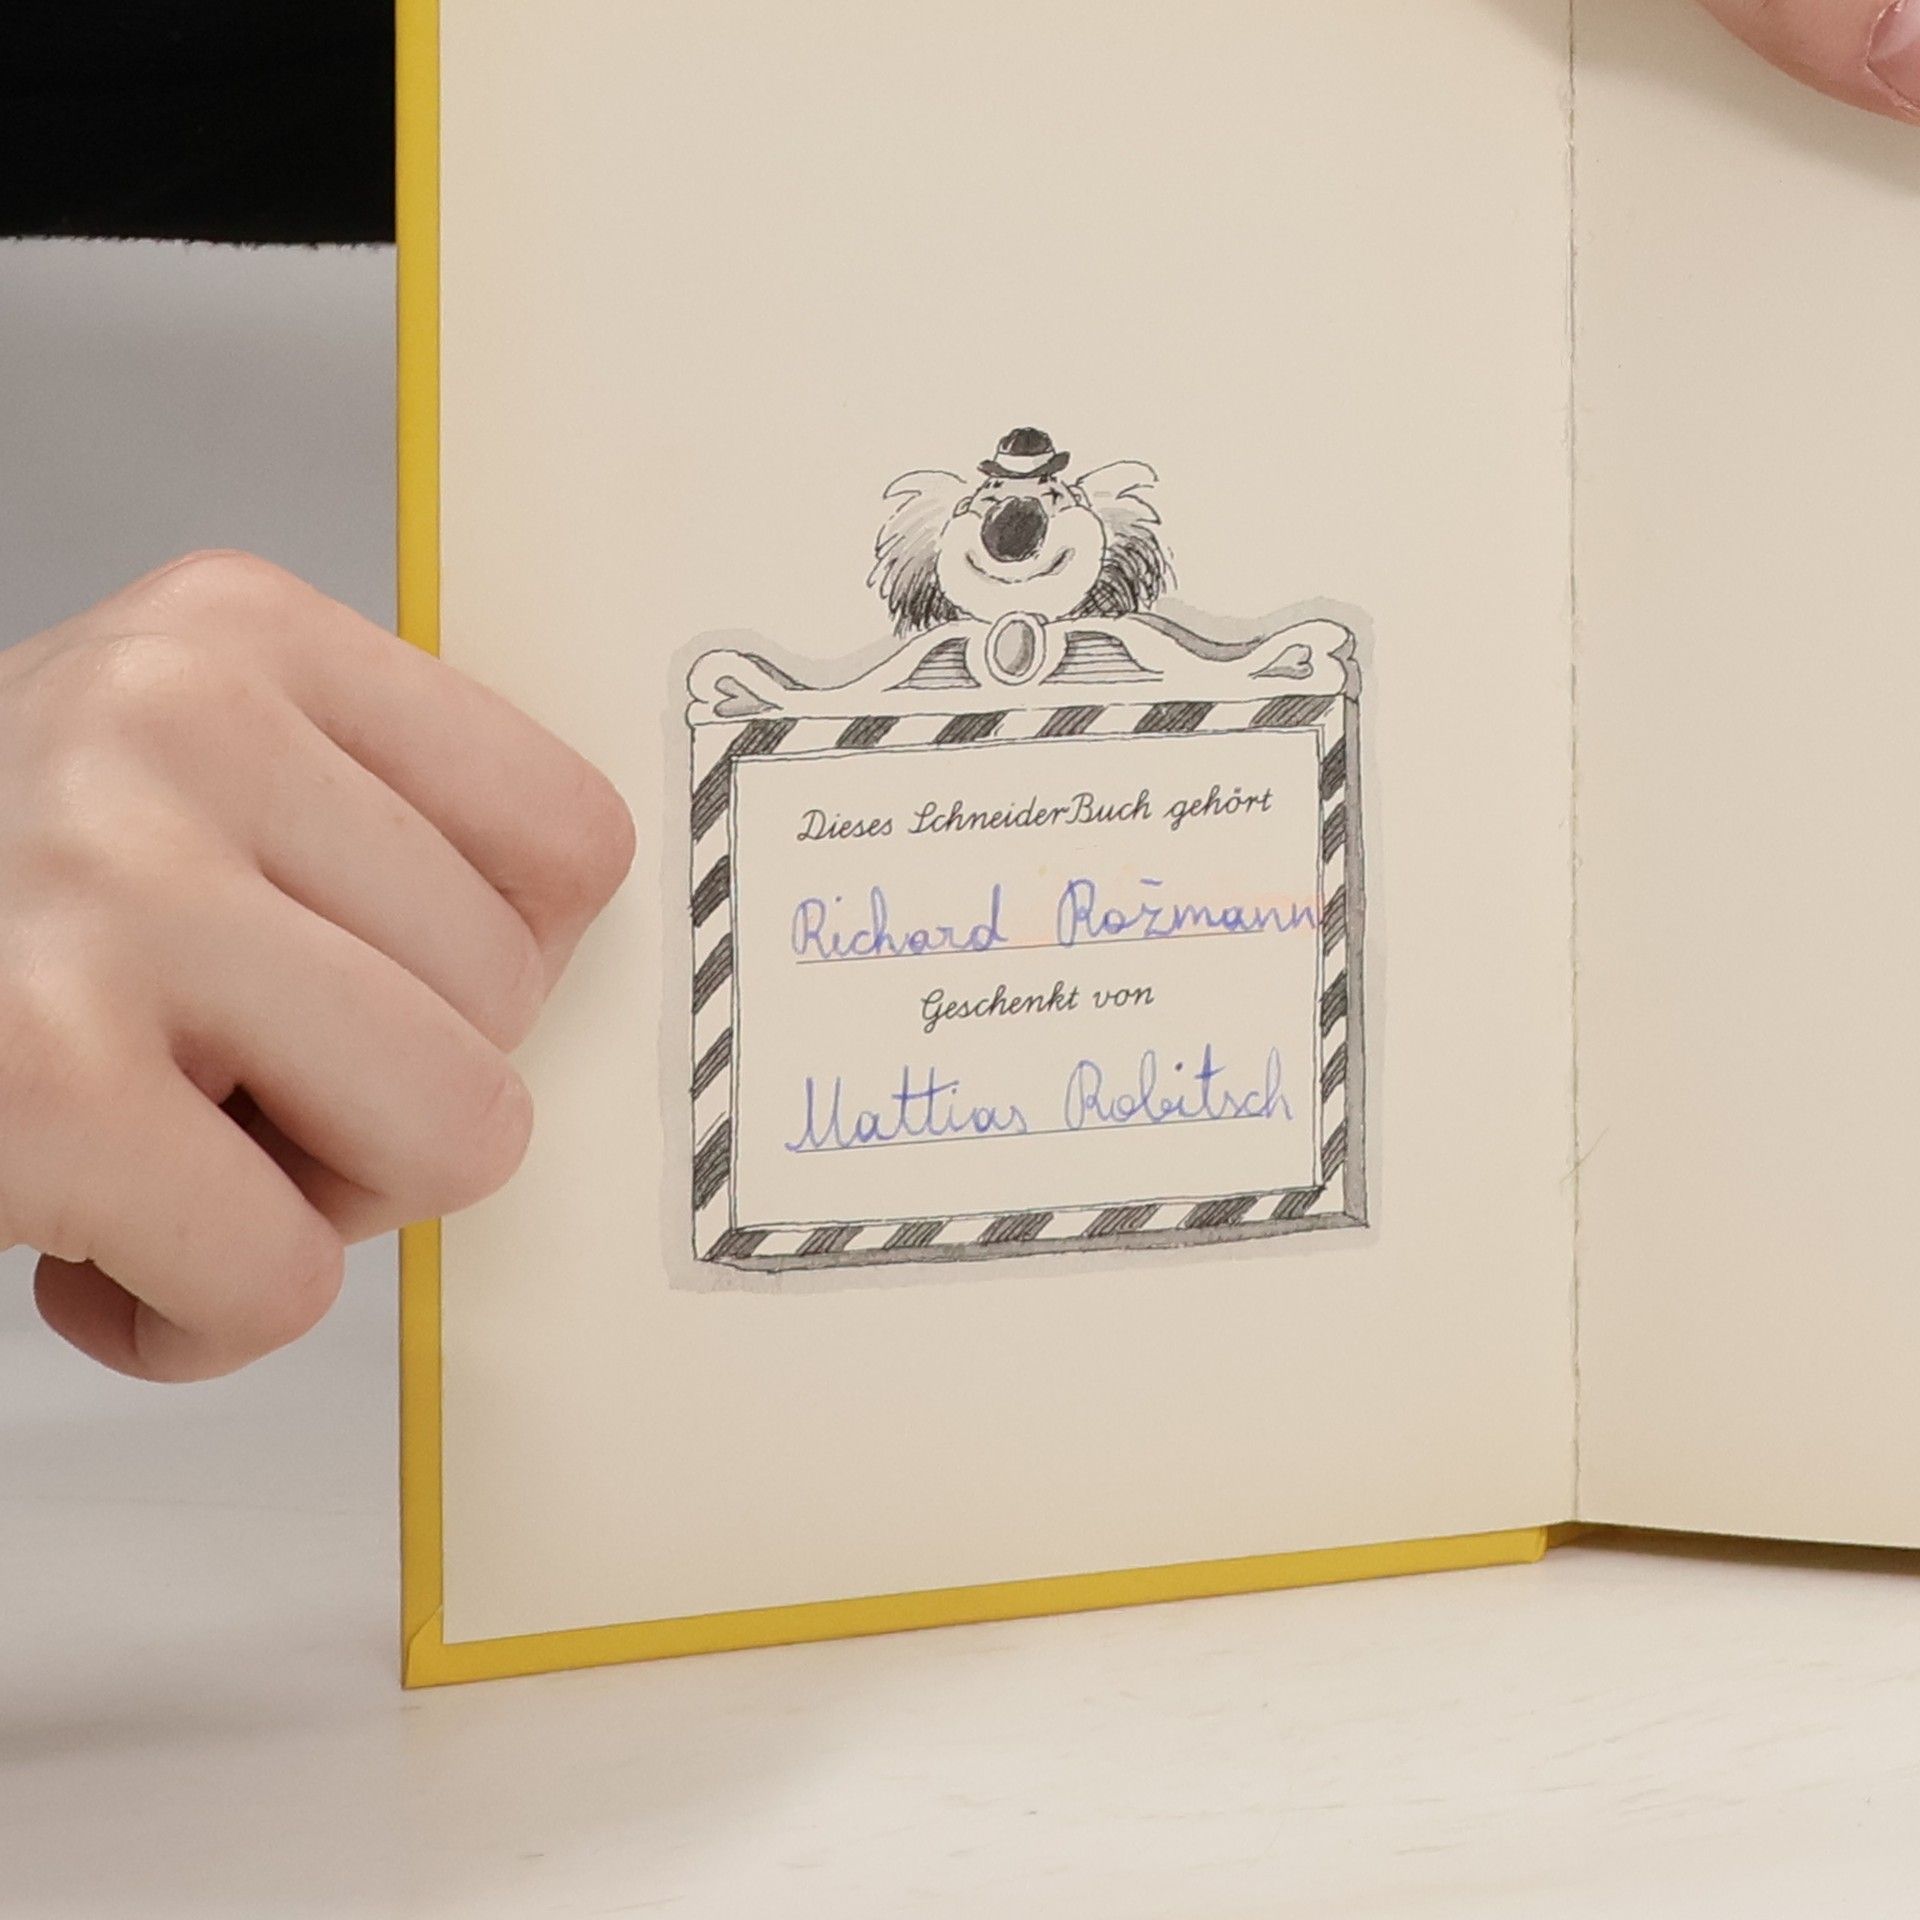 Dieses SchneiderBuch gehört
Richard Rožmann
Geschenkt von
Mattias Robitsch